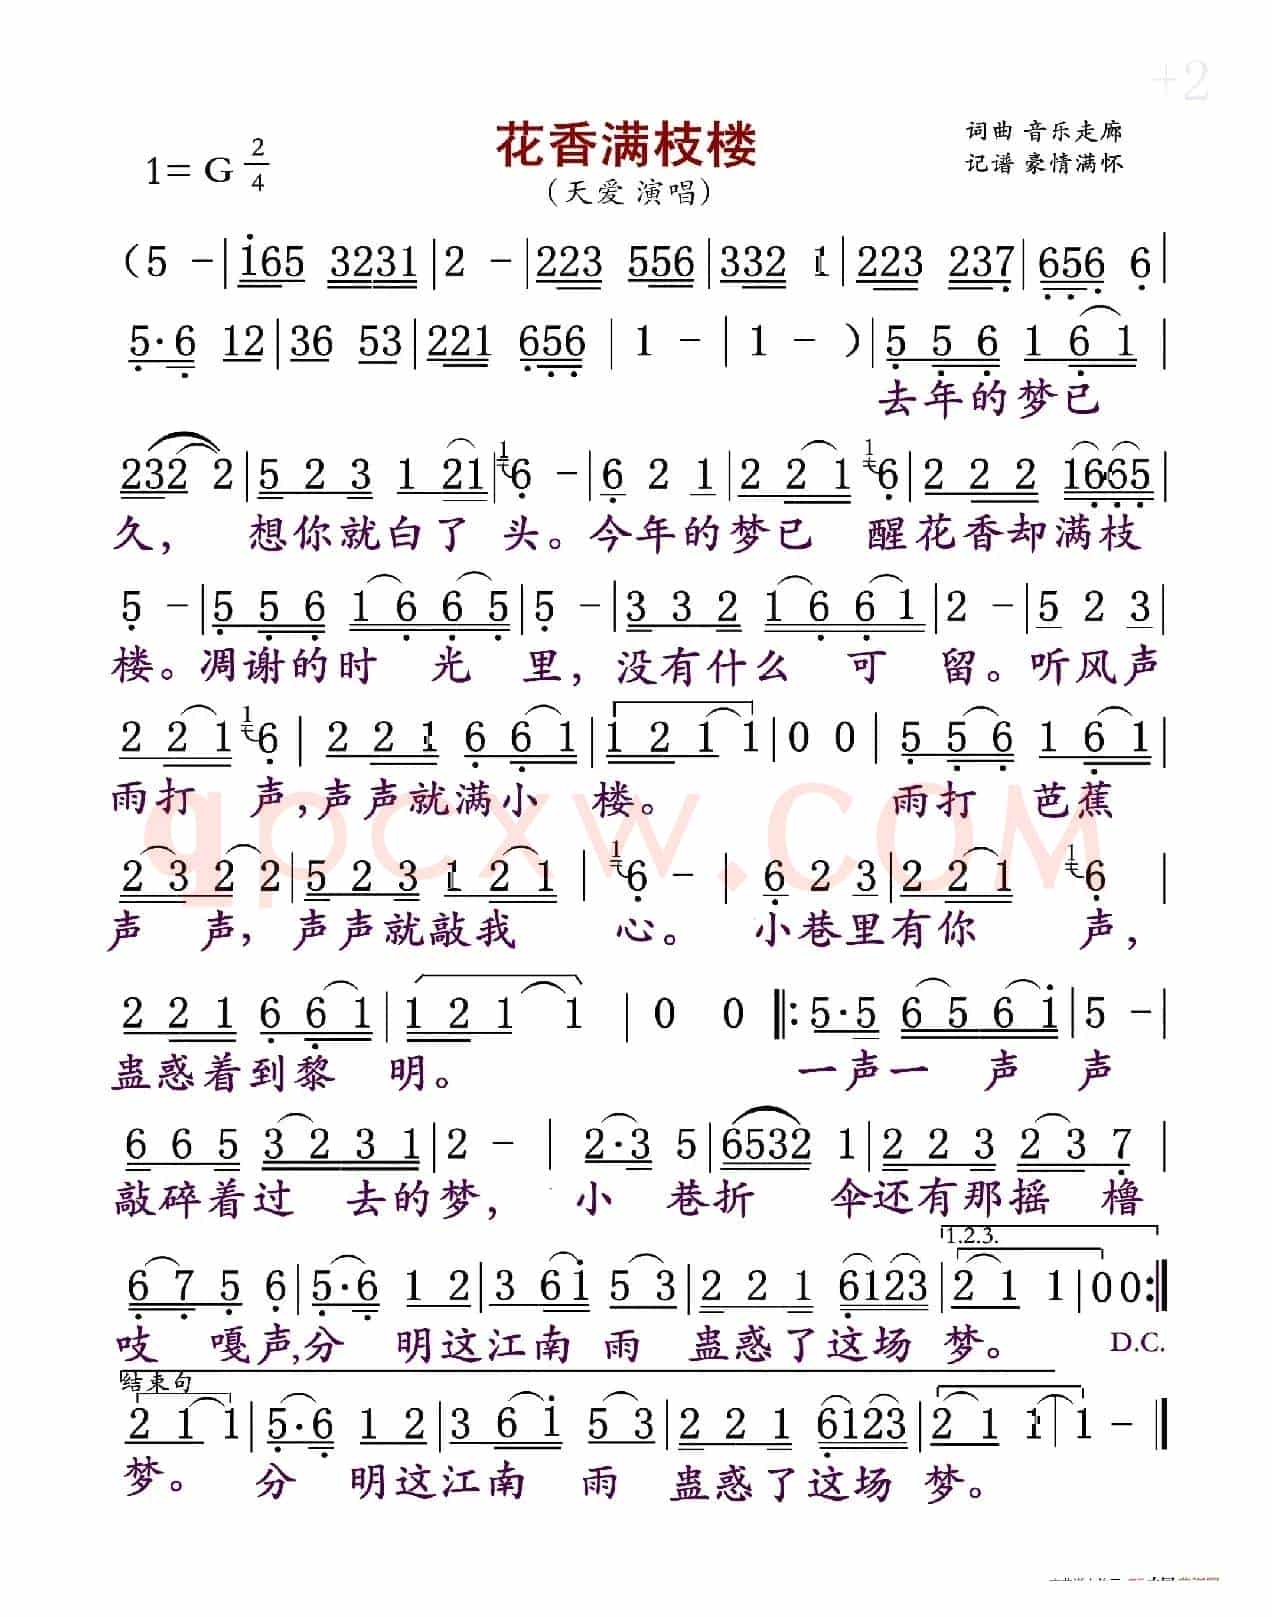 +2
花香满枝楼
词曲 音乐走廊
1= G 2/4
(天爱 演唱)
记谱 豪情满怀
(5 - | 165 3231 | 2 - | 223 556 | 332 1 | 223 237 | 656 6 |
5·6 12 | 36 53 | 221 656 | 1 - | 1 - ) | 5 5 6 1 6 1 |
去年的梦已
232 2 | 5 2 3 1 21 | 1 6 - | 6 2 1 | 2 2 1 1 6 | 2 2 2 1665 |
久, 想你就白了头。今年的梦已 醒花香却满枝
5 - | 5 5 6 1 6 6 5 | 5 - | 3 3 2 1 6 6 1 | 2 - | 5 2 3 |
楼。凋谢的时 光 里, 没有什么 可 留。听风声
2 2 1 1 6 | 2 2 1 6 6 1 | 1 2 1 1 | 0 0 | 5 5 6 1 6 1 |
雨打 声,声声就满小 楼。 雨打 芭蕉
qpcxw.COM
2 3 2 2 | 5 2 3 1 2 1 | 1 6 - | 6 2 3 | 2 2 1 1 6 |
声 声, 声声就敲我 心。 小巷里有你 声,
2 2 1 6 6 1 | 1 2 1 1 | 0 0 |: 5·5 6 5 6 1 | 5 - |
蛊惑着到黎 明。 一声一 声 声
6 6 5 3 2 3 1 | 2 - | 2·3 5 | 6532 1 | 2 2 3 2 3 7 |
敲碎着过 去的梦, 小 巷折 伞还有那摇 橹
1.2.3.
6 7 5 6 | 5·6 1 2 | 3 6 1 5 3 | 2 2 1 6123 | 2 1 1 | 0 0 :|
吱 嘎声,分 明这江南 雨 蛊惑了这场 梦。 D.C.
结束句
2 1 1 | 5·6 1 2 | 3 6 1 5 3 | 2 2 1 6123 | 2 1 1 | 1 - |
梦。 分 明这江南 雨 蛊惑了这场 梦。